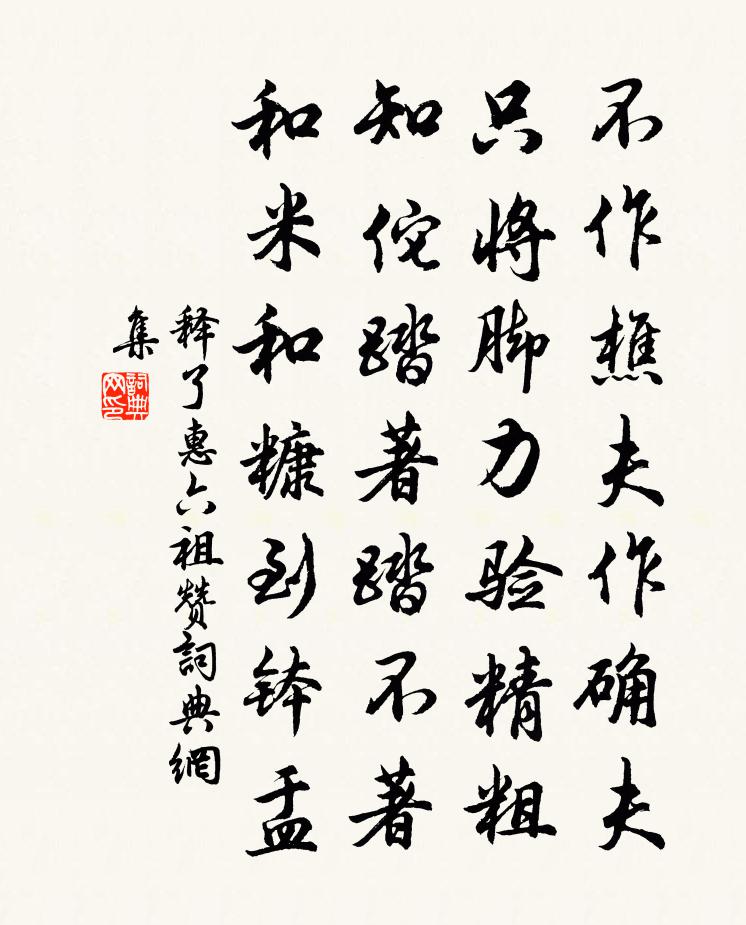 不作樵夫作确夫
只将脚力验精粗
知佗踏著踏不著
和米和糠到钵盂
释了惠六祖赞詞典網
集
詞典
网印